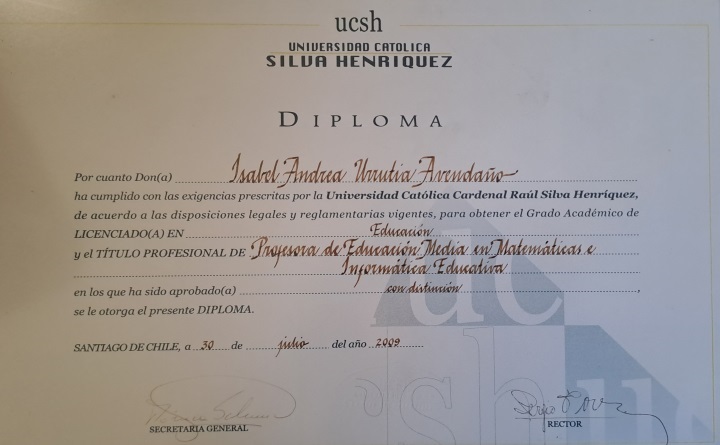 ucsh
UNIVERSIDAD CATOLICA
SILVA HENRIQUEZ
DIPLOMA
Por cuanto Don(a) Isabel Andrea Urrutia Avendaño
ha cumplido con las exigencias prescritas por la Universidad Católica Cardenal Raúl Silva Henríquez,
de acuerdo a las disposiciones legales y reglamentarias vigentes, para obtener el Grado Académico de
LICENCIADO(A) EN Educación
y el TÍTULO PROFESIONAL DE Profesora de Educación Media en Matemáticas e
Informática Educativa
en los que ha sido aprobado(a) con distinción,
se le otorga el presente DIPLOMA.
SANTIAGO DE CHILE, a 30 de julio del año 2009
SECRETARIA GENERAL
RECTOR